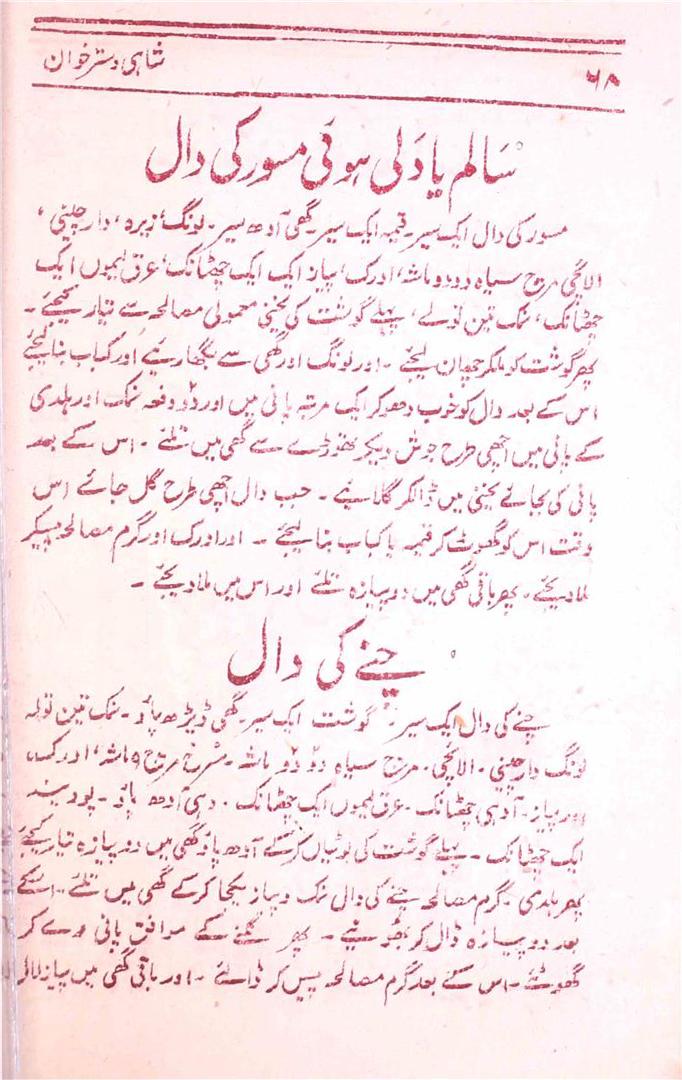 ۶۸
شاہی دسترخوان
سالم یا دَلی ہوئی مسور کی دال
مسور کی دال ایک سیر۔ قیمہ ایک سیر۔ گھی آدھ سیر۔ لونگ، زیرہ، دارچینی،
الائچی مرچ سیاہ دو دو ماشہ، ادرک، پیاز ایک ایک چھٹانک، عرق لیموں ایک
چھٹانک، نمک تین تولے، پہلے گوشت کی یخنی معمولی مصالحہ سے تیار کیجئے۔
پھر گوشت کو ملکر چھان لیجئے۔ اور لونگ اور گھی سے بگھاریئے اور کباب بنا لیجئے
اس کے بعد دال کو خوب دھو کر ایک مرتبہ پانی میں اور دو دفعہ نمک اور ہلدی
کے پانی میں اچھی طرح جوش دیکر تھوڑے سے گھی میں تلئے۔ اس کے بعد
پانی کی بجائے یخنی میں ڈالکر گلائیے۔ جب دال اچھی طرح گل جائے اس
وقت اس کو گھوٹ کر قیمہ یا کباب بنا لیجئے۔ اور ادرک اور گرم مصالحہ پیسکر
ملا دیجئے۔ پھر باقی گھی میں دوپیازہ تلئے اور اس میں ملا دیجئے۔
چنے کی دال
چنے کی دال ایک سیر۔ گوشت ایک سیر۔ گھی ڈیڑھ پاؤ۔ نمک تین تولہ
لونگ دارچینی۔ الائچی۔ مرچ سیاہ دو دو ماشہ۔ سرخ مرچ ۹ ماشہ، ادرک،
اور پیاز۔ آدہی چھٹانک۔ عرق لیموں ایک چھٹانک۔ دہی آدھ پاؤ۔ پودینہ
ایک چھٹانک۔ پہلے گوشت کی بوٹیاں کرکے آدھ پاؤ گھی میں دوپیازہ تیار کیجئے
پھر ہلدی۔ گرم مصالحہ چنے کی دال نمک و پیاز یکجا کرکے گھی میں تلئے۔ اسکے
بعد دوپیازہ ڈال کر بھونیے۔ پھر گلنے کے موافق پانی دے کر
گھوٹئے۔ اس کے بعد گرم مصالحہ پیس کر ڈالئے۔ اور باقی گھی میں پیاز لال